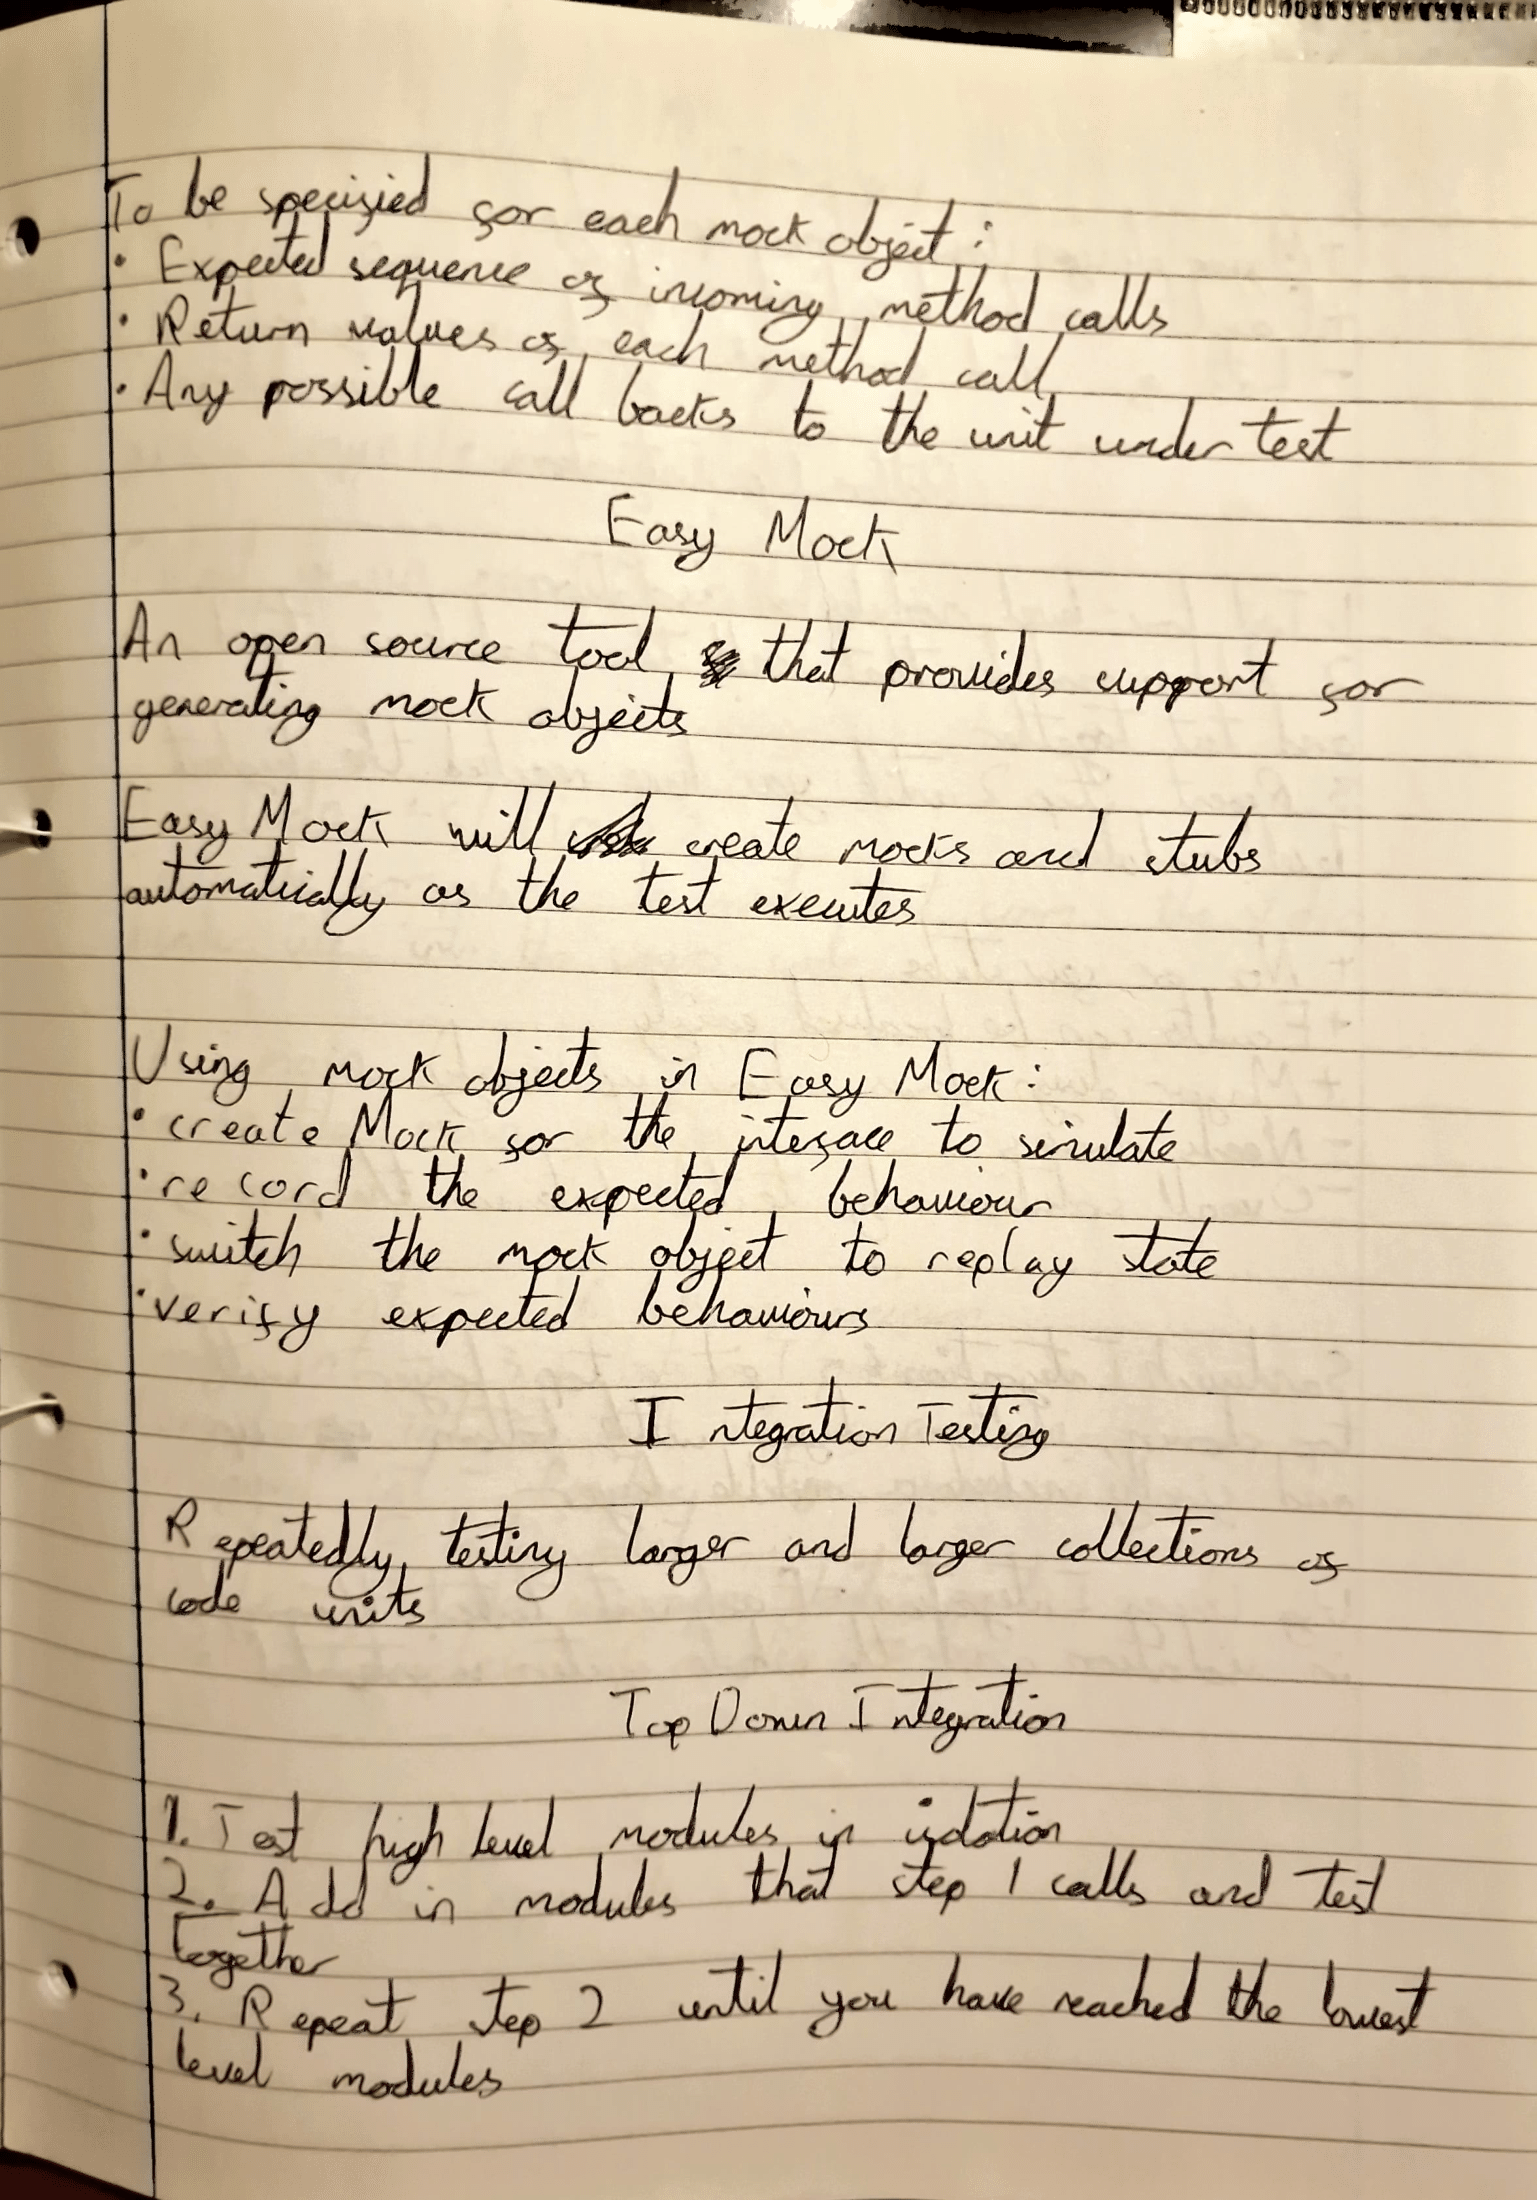 To be specified for each mock object:
• Expected sequence of incoming method calls
• Return values of each method call
• Any possible call backs to the unit under test
Easy Mock
An open source tool that provides support for
generating mock objects
Easy Mock will create mocks and stubs
automatically as the test executes
Using mock objects in Easy Mock:
• create Mock for the interface to simulate
• record the expected behaviour
• switch the mock object to replay state
• verify expected behaviours
Integration Testing
Repeatedly testing larger and larger collections of
code units
Top Down Integration
1. Test high level modules in isolation
2. Add in modules that step 1 calls and test
together
3. Repeat step 2 until you have reached the lowest
level modules